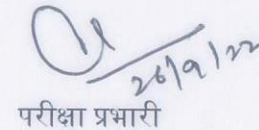 26/9/22
परीक्षा प्रभारी